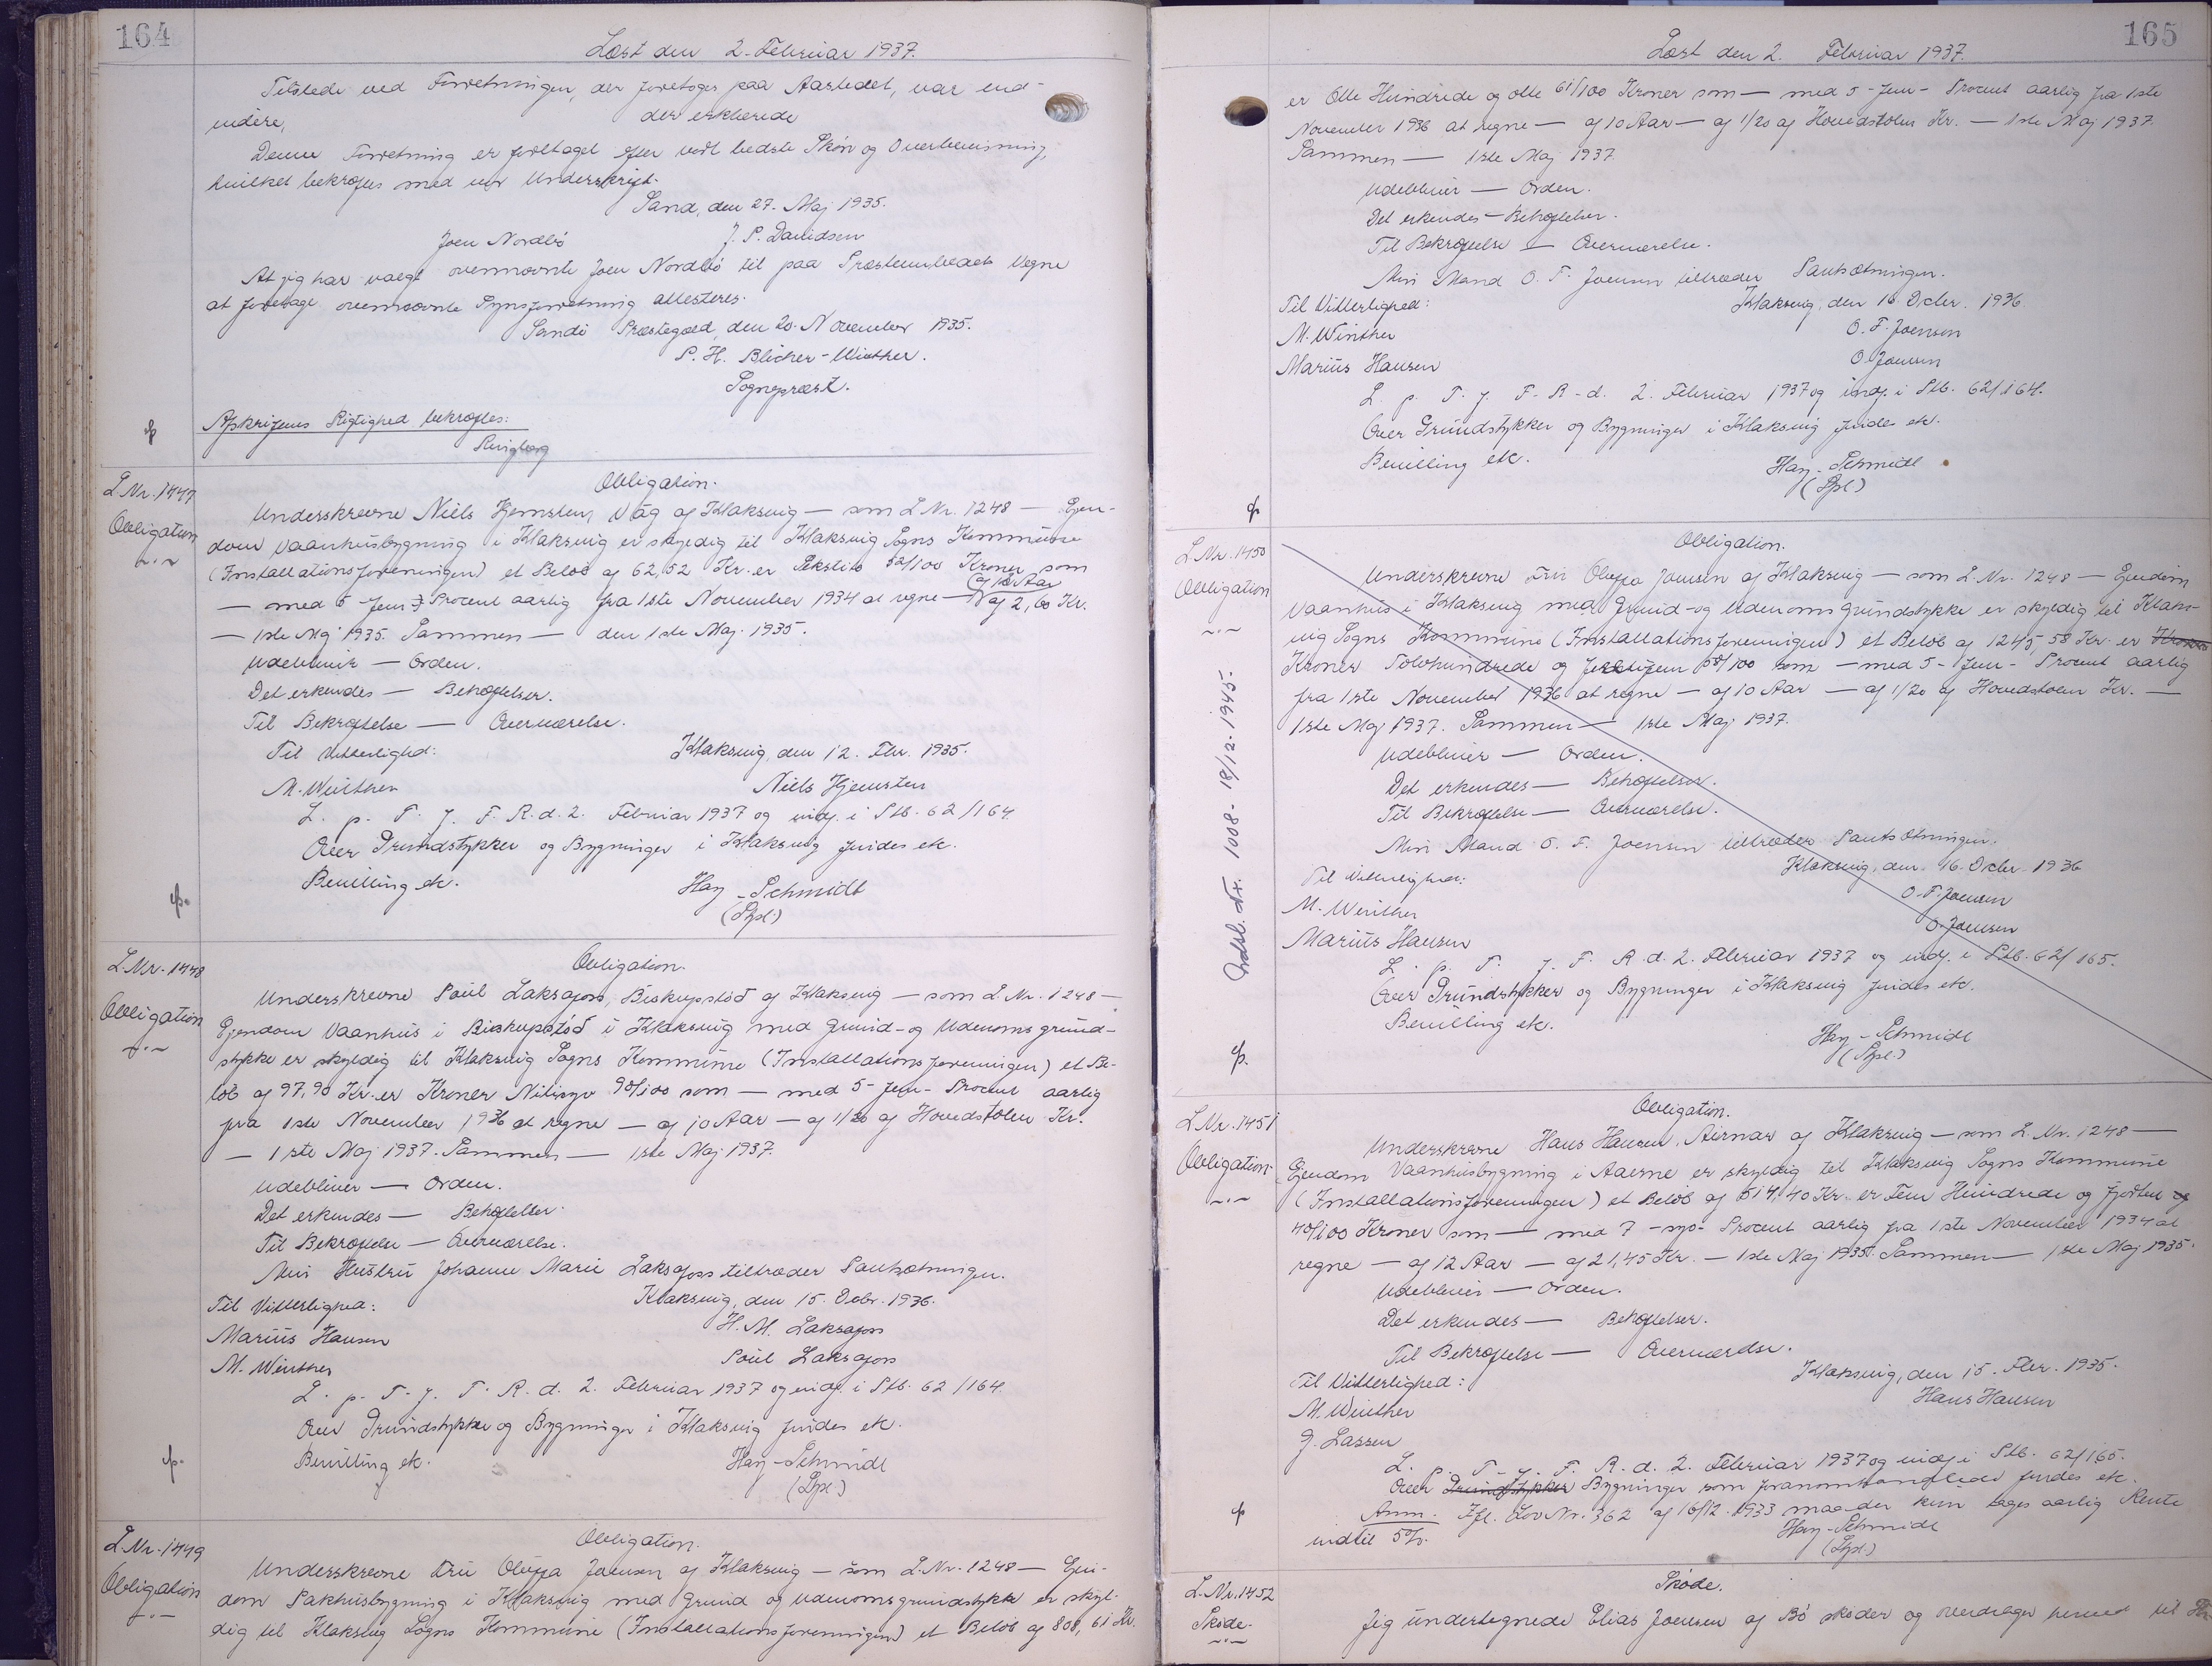 164
Læst den 2. Februar 1937.
Tilstede ved Forretningen, der foretoges paa Aastedet, var end-
videre, der erklærede
Denne Forretning er foretaget efter vort bedste Skøn og Overbevisning,
hvilket bekræftes med vor Underskrift.
Sand, den 27. Maj 1935.
Joen Nordbö J. P. Davidsen
At jeg har valgt ovennævnte Joen Nordbö til paa Præsteembedets Vegne
at foretage ovennævnte Synsforretning attesteres.
Sandö Præstegaard, den 20. November 1935.
P. H. Blicher-Winther.
Sognepræst.
Afskriftens Rigtighed bekræftes:
L.Nr. 1447
Obligation
Obligation.
Underskrevne Niels Hjemsten, Vág af Klaksvig — som L.Nr. 1248 — Ejen-
dom Vaanhusbygning i Klaksvig er skyldig til Klaksvig Sogns Kommune
(Installationsforeningen) et Beløb af 62,52 Kr. er Seksti to 52/100 Kroner som
— med 5 - fem - Procent aarlig fra 1ste November 1934 at regne — af 12 Aar — af 2,60 Kr.
— 1ste Maj 1935. Sammen — den 1ste Maj 1935.
Udebliver — Orden.
Det erkendes — Behæftelser.
Til Bekræftelse — Overværelse.
Til Vitterlighed: Klaksvig, den 12. Fbr. 1935.
M. Winther Niels Hjemsten
L. p. T. f. F. R. d. 2. Februar 1937 og indf. i Skb. 62/164.
Over Grundstykker og Bygninger i Klaksvig findes etc.
Bevilling etc. Hay-Schmidt
L.Nr. 1448
Obligation
Obligation.
Underskrevne Poul Laksafoss, Biskupsstöð af Klaksvig — som L.Nr. 1248 —
Ejendom Vaanhus i Biskupsstöð i Klaksvig med Grund- og Udenomsgrund-
stykke er skyldig til Klaksvig Sogns Kommune (Installationsforeningen) et Be-
løb af 97,90 Kr. er Kroner Nitisyv 90/100 som — med 5 - fem - Procent aarlig
fra 1ste November 1936 at regne — af 10 Aar — af 1/20 af Hovedstolen Kr.
— 1ste Maj 1937. Sammen — 1ste Maj 1937.
Udebliver — Orden.
Det erkendes — Behæftelser.
Til Bekræftelse — Overværelse.
Min Hustru Johanne Marie Laksafoss tiltræder Pantsætningen.
Til Vitterlighed: Klaksvig, den 15. Debr. 1936.
Marius Hansen H. M. Laksafoss
M. Winther Poul Laksafoss
L. p. T. f. F. R. d. 2. Februar 1937 og indf. i Skb. 62/164.
Over Grundstykke og Bygninger i Klaksvig findes etc.
Bevilling etc. Hay-Schmidt
L.Nr. 1449
Obligation
Obligation.
Underskrevne Fru Oluffa Joensen af Klaksvig — som L.Nr. 1248 — Ejen-
dom Pakhusbygning i Klaksvig med Grund og Udenomsgrundstykke er skyl-
dig til Klaksvig Sogns Kommune (Installationsforeningen) et Beløb af 808,61 Kr.
165
Læst den 2. Februar 1937.
er Otte Hundrede og otte 61/100 Kroner som — med 5 - fem - Procent aarlig fra 1ste
November 1936 at regne — af 10 Aar — af 1/20 af Hovedstolen Kr. — 1ste Maj 1937.
Sammen — 1ste Maj 1937
Udebliver — Orden.
Det erkendes — Behæftelser.
Til Bekræftelse — Overværelse.
Min Mand O. F. Joensen tiltræder Pantsætningen.
Til Vitterlighed: Klaksvig, den 16 Octbr. 1936.
M. Winther O. F. Joensen
Marius Hansen O. Joensen
L. p. T. f. F. R. d. 2. Februar 1937 og indf. i Skb. 62/164.
Over Grundstykker og Bygninger i Klaksvig findes etc.
Bevilling etc. Hay-Schmidt
L.Nr. 1450
Obligation
Obligation.
Underskrevne Fru Oluffa Joensen af Klaksvig — som L.Nr. 1248 — Ejendom
Vaanhus i Klaksvig med Grund- og Udenomsgrundstykke er skyldig til Klaks-
vig Sogns Kommune (Installationsforeningen) et Beløb af 1245,58 Kr. er Kroner
Kroner Tolvhundrede og fem 58/100 som — med 5 - fem - Procent aarlig
fra 1ste November 1936 at regne — af 10 Aar — af 1/20 af Hovedstolen Kr. —
1ste Maj 1937. Sammen — 1ste Maj 1937.
Udebliver — Orden.
Det erkendes — Behæftelser.
Til Bekræftelse — Overværelse.
Min Mand O. F. Joensen tiltræder Pantsætningen.
Klaksvig, den 16. Octbr. 1936
Til Vitterlighed: O. F. Joensen
M. Winther O. Joensen
Marius Hansen
L. p. T. f. F. R. d. 2. Februar 1937 og indf. i Skb. 62/165.
Over Grundstykker og Bygninger i Klaksvig findes etc.
Bevilling etc. Hay-Schmidt
Udsl. Nr. 1008 - 18/12-1945.
L.Nr. 1451
Obligation
Obligation.
Underskrevne Hans Hansen, Áirnar af Klaksvig — som L.Nr. 1248 —
Ejendom Vaanhusbygning i Aaerne er skyldig til Klaksvig Sogns Kommune
(Installationsforeningen) et Beløb af 514,40 Kr. er Fem Hundrede og fjorten og
40/100 Kroner som — med 7 - syv - Procent aarlig fra 1ste November 1934 at
regne — af 12 Aar — af 21,45 Kr. — 1ste Maj 1935. Sammen — 1ste Maj 1935.
Udebliver — Orden.
Det erkendes — Behæftelser.
Til Bekræftelse — Overværelse.
Til Vitterlighed: Klaksvig, den 15. Fbr. 1935.
M. Winther Hans Hansen
J. Lassen
L. p. T. f. F. R. d. 2. Februar 1937 og indf. i Skb. 62/165.
Over Grundstykker Bygninger som foranomhandlede findes etc.
Anm. Ifl. Lov Nr. 362 af 16/12. 1933 maa der kun tages aarlig Rente
indtil 5%. Hay-Schmidt
L.Nr. 1452
Skøde.
Skøde.
Jeg undertegnede Elias Joensen af Bö skøder og overdrager herved til